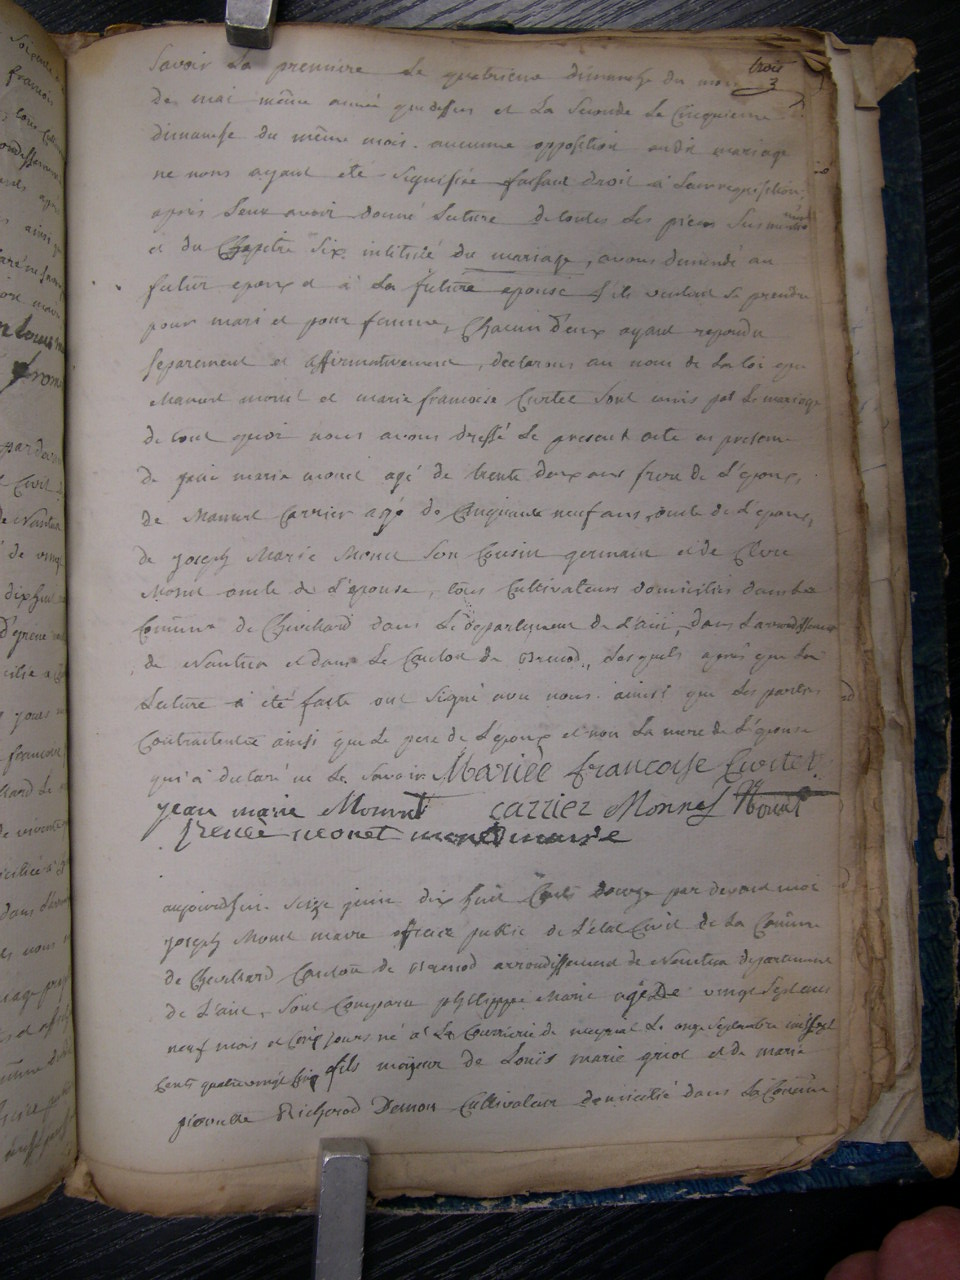 trois
3
Savoir la premiere le quatrieme dimanche du mois
de mai même année que dessus et la seconde le Cinquieme
dimanche du même mois. aucunne opposition audit mariage
ne nous ayant eté signifiée faisant droit à leur requisition,
après leur avoir donné lecture de toutes les pieces
et du Chapitre Six intitulé du mariage, avons demandé au
futur epoux et à la future epouse s'ils veulent se prendre
pour mari et pour femme, Chacun d'eux ayant repondu
separement et affirmativement, declarons au nom de la loi que
Manuel monet et marie francoise Curtet sont unis par le mariage
de tout quoi nous avons dressé le present acte en presence
de jean marie monet agé de trente deux ans frere de l'epoux,
de Manuel Carrier agé de Cinquante neuf ans, oncle de l'epoux,
de joseph Marie Monet son Cousin germain et de
Monet oncle de l'épouse, tous Cultivateurs domiciliés dans la
Commune de Chevillard dans le departement de l'ain, dans l'arrondissement
de Nantua et dans le Canton de Brenod, lesquels après que la
lecture a été faite ont signé avec nous ainsi que les parties
Contractantes ainsi que le pere de l'epoux et non la mere de l'épouse
qui a declaré ne le savoir Mariée francoise Curtet
jean marie Monnet carrier Monnet Monet
monet maire
aujourdhui seize juin dix huit Cents douze par devant moi
joseph Monet maire officier public de l'état Civil de la Commune
de Chevillard Canton de Brenod arrondissement de Nantua departement
de l'ain, sont Comparu philippe Marie agé De vingt Sept ans
neuf mois et Cinq jours né à le onze Septembre mil sept
Cents quatre vingt fils majeur de Louis marie et de marie
pierrette Cultivateur domicilié dans la Commune